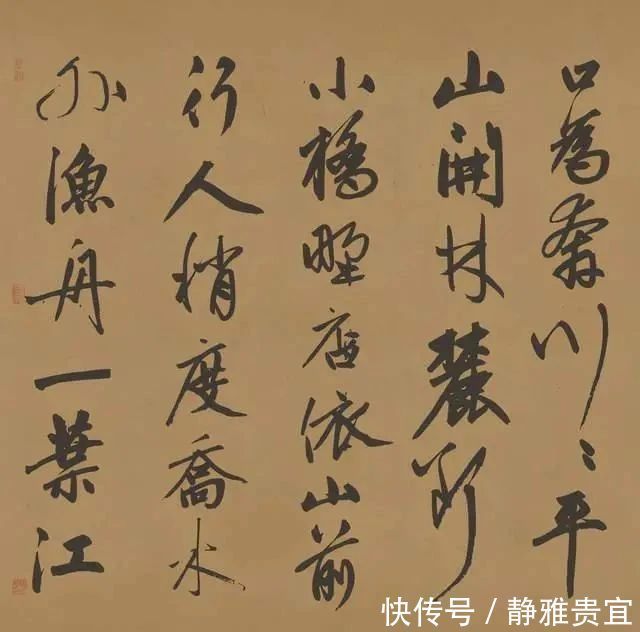 口為奔川〻平
山開林麓斷
小橋野店依山前
行人稍度喬木
外漁舟一葉江
快传号 / 静雅贵宜